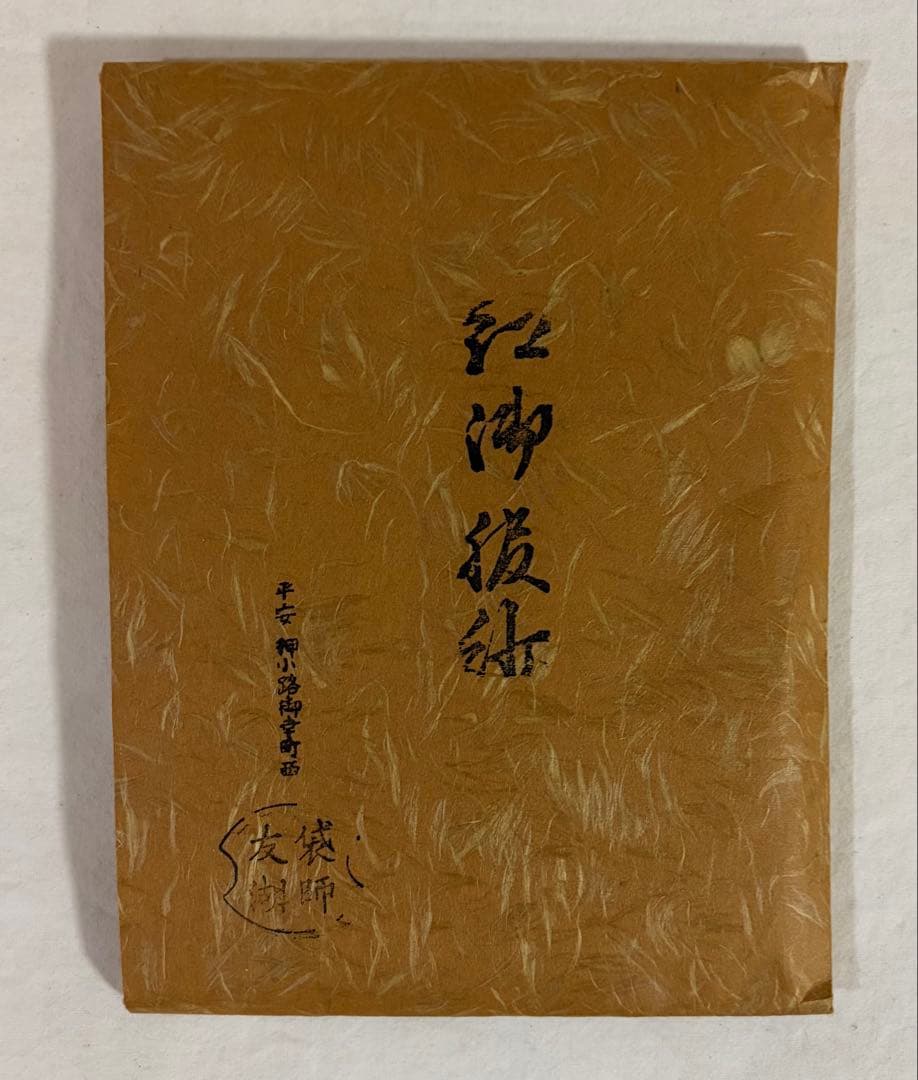 紅御服紗
平安 押小路御幸町西
袋師
友湖